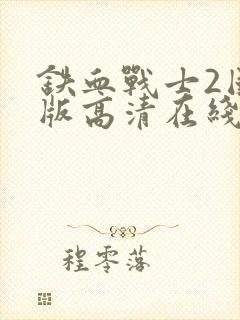 鉄血戰士2
版高清在綫
程零落